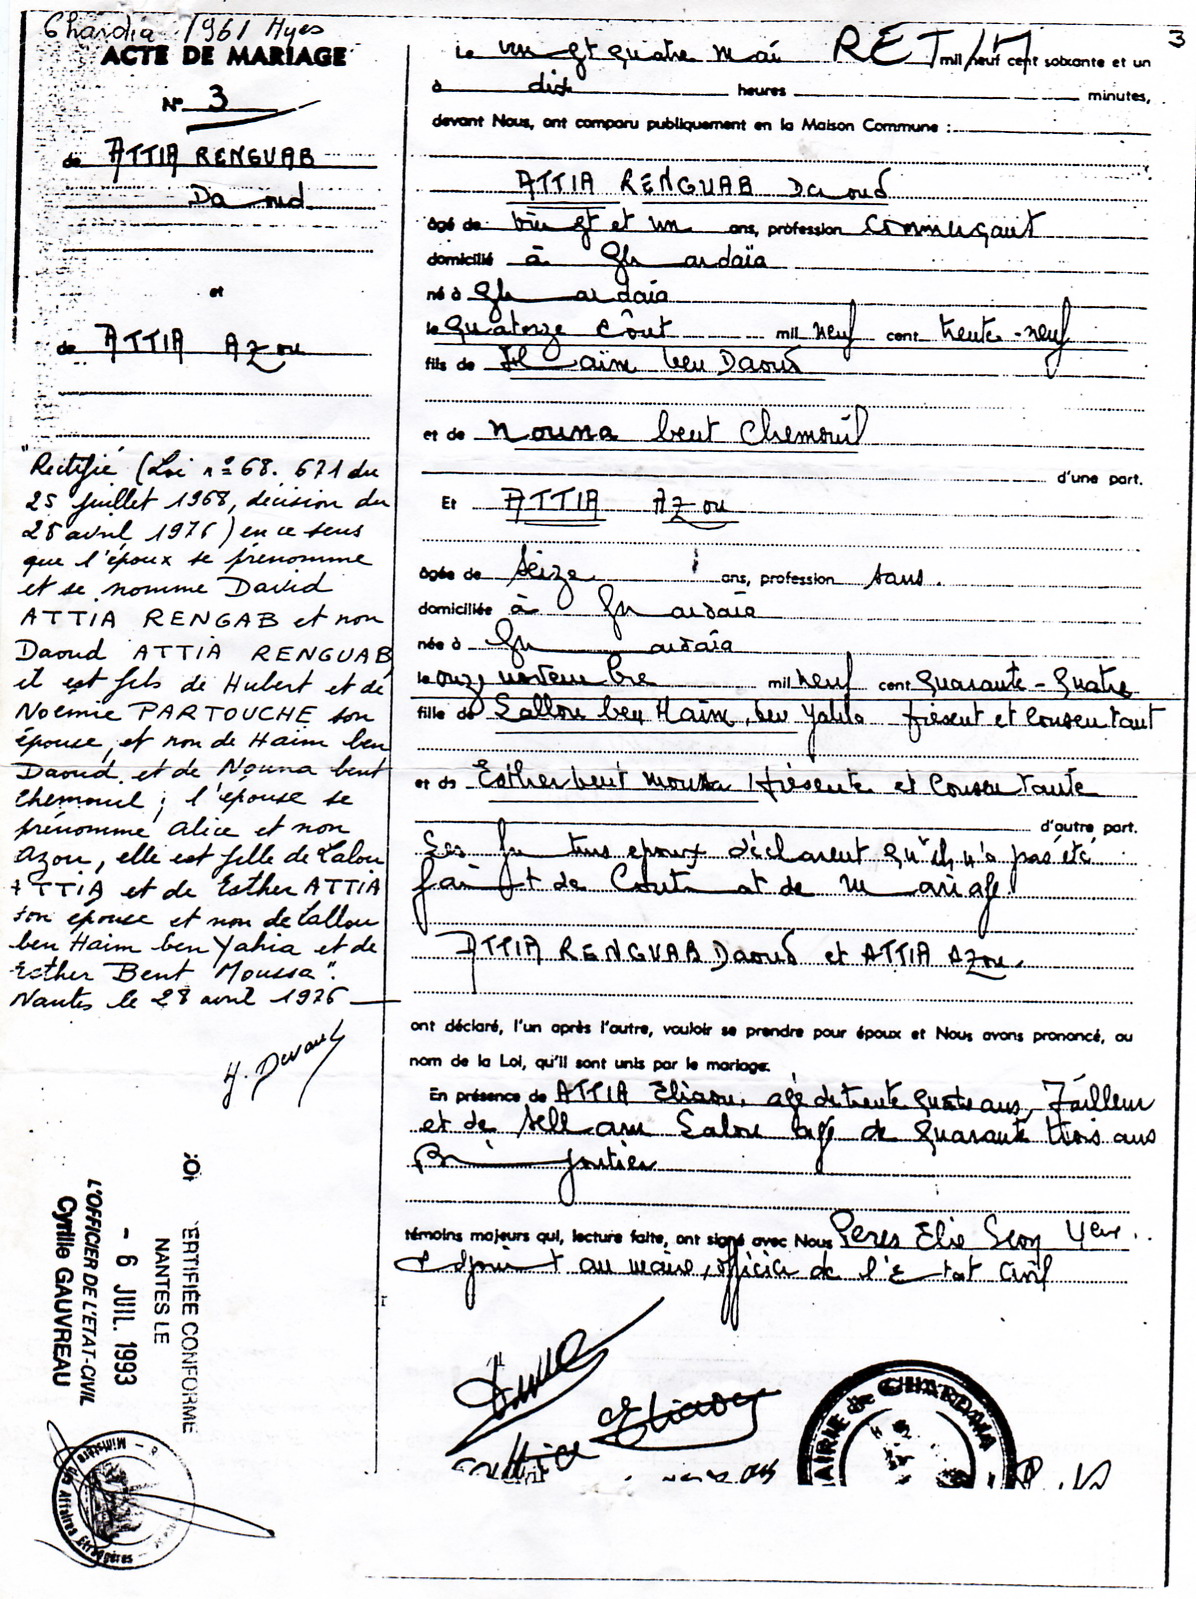 Ghardia 1961 Ayes
ACTE DE MARIAGE
N° 3
de ATTIA RENGUAB
Daoud
et
de ATTIA Azou
"Rectifié (Loi n° 68. 671 du
25 juillet 1968, décision du
28 avril 1976) en ce sens
que l'époux se prénomme
et se nomme David
ATTIA RENGAB et non
Daoud ATTIA RENGUAB
il est fils de Hubert et de
Noemie PARTOUCHE son
épouse, et non de Haim ben
Daoud et de Nouna bent
Chemouil ; l'épouse se
prénomme Alice et non
Azou, elle est fille de Lalou
ATTIA et de Esther ATTIA
son épouse et non de Lallou
ben Haim ben Yahia et de
Esther Bent Moussa".
Nantes le 28 avril 1976
ERTIFIÉE CONFORME
NANTES LE
- 6 JUIL. 1993
L'OFFICIER DE L'ETAT-CIVIL
Cyrille GAUVREAU
Ministère des Affaires Etrangères
3
Le vingt quatre mai RET mil neuf cent soixante et un
à dix heures minutes,
devant Nous, ont comparu publiquement en la Maison Commune :
ATTIA RENGUAB Daoud
âgé de vingt et un ans, profession Commerçant
domicilié à Ghardaïa
né à Ghardaïa
le quatorze Août mil neuf cent trente-neuf
fils de Haim ben Daoud
et de Nouna bent Chemouil
d'une part.
Et ATTIA Azou
âgée de seize ans, profession sans.
domiciliée à Ghardaïa
née à Ghardaïa
le onze novembre mil neuf cent quarante-quatre
fille de Lallou ben Haim, ben Yahia présent et consentant
et de Esther bent moussa présente et consentante
d'autre part.
Les futurs époux déclarent qu'il n'a pas été
fait de Contrat de Mariage.
ATTIA RENGUAB Daoud et ATTIA Azou.
ont déclaré, l'un après l'autre, vouloir se prendre pour époux et Nous avons prononcé, au
nom de la Loi, qu'il sont unis par le mariage.
En présence de ATTIA Eliaou, agé de trente quatre ans, Tailleur
et de Sellam Lalou agé de quarante trois ans
Bijoutier
témoins majeurs qui, lecture faite, ont signé avec Nous Peres Elie Sion
Adjoint au maire, officier de l'Etat Civil
MAIRIE de GHARDAIA